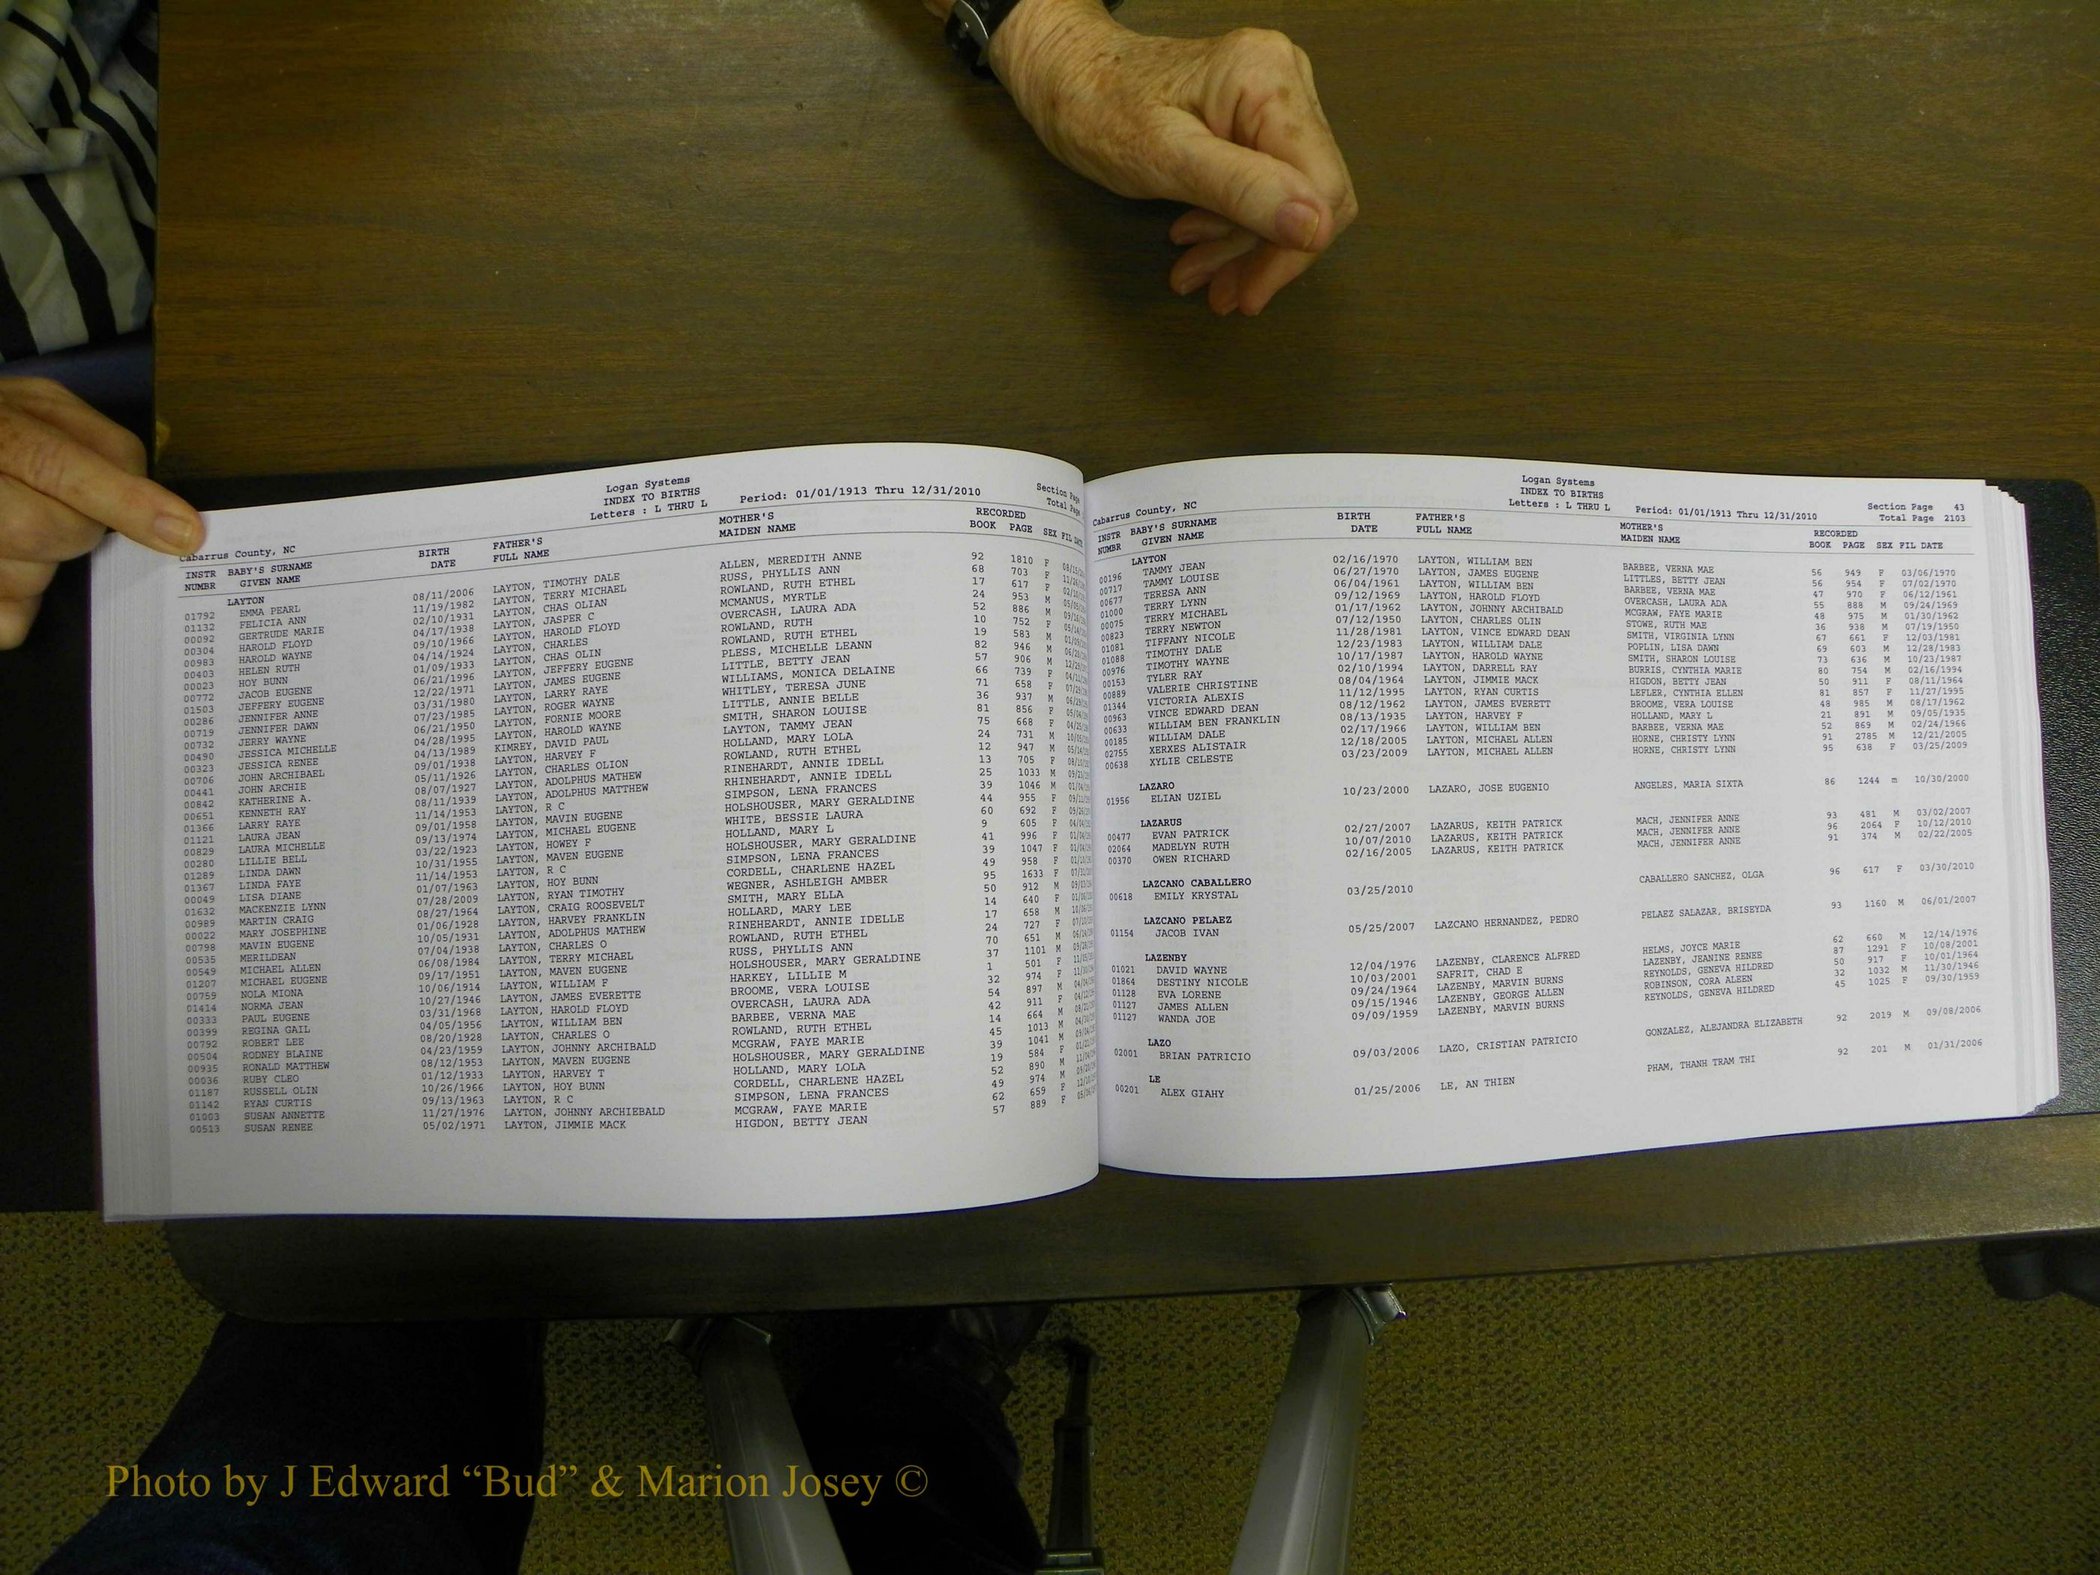 Logan Systems
INDEX TO BIRTHS
Letters : L THRU L
Cabarrus County, NC Period: 01/01/1913 Thru 12/31/2010 Section Page
Total Page
INSTR BABY'S SURNAME BIRTH FATHER'S MOTHER'S RECORDED
NUMBR GIVEN NAME DATE FULL NAME MAIDEN NAME BOOK PAGE SEX FIL DATE
LAYTON
01792 EMMA PEARL 08/11/2006 LAYTON, TIMOTHY DALE ALLEN, MEREDITH ANNE 92 1810 F
01132 FELICIA ANN 11/19/1982 LAYTON, TERRY MICHAEL RUSS, PHYLLIS ANN 68 703 F
00092 GERTRUDE MARIE 02/10/1931 LAYTON, CHAS OLIAN ROWLAND, RUTH ETHEL 17 617 F
00304 HAROLD FLOYD 04/17/1938 LAYTON, JASPER C MCMANUS, MYRTLE 24 953 M
00983 HAROLD WAYNE 09/10/1966 LAYTON, HAROLD FLOYD OVERCASH, LAURA ADA 52 886 M
00403 HELEN RUTH 04/14/1924 LAYTON, CHARLES ROWLAND, RUTH 10 752 F
00023 HOY BUNN 01/09/1933 LAYTON, CHAS OLIN ROWLAND, RUTH ETHEL 19 583 M
00772 JACOB EUGENE 06/21/1996 LAYTON, JEFFERY EUGENE PLESS, MICHELLE LEANN 82 946 M
01503 JEFFERY EUGENE 12/22/1971 LAYTON, JAMES EUGENE LITTLE, BETTY JEAN 57 906 M
00286 JENNIFER ANNE 03/31/1980 LAYTON, LARRY RAYE WILLIAMS, MONICA DELAINE 66 739 F
00719 JENNIFER DAWN 07/23/1985 LAYTON, ROGER WAYNE WHITLEY, TERESA JUNE 71 658 F
00732 JERRY WAYNE 06/21/1950 LAYTON, FORNIE MOORE LITTLE, ANNIE BELLE 36 937 M
00490 JESSICA MICHELLE 04/28/1995 LAYTON, HAROLD WAYNE SMITH, SHARON LOUISE 81 856 F
00323 JESSICA RENEE 04/13/1989 KIMREY, DAVID PAUL LAYTON, TAMMY JEAN 75 668 F
00706 JOHN ARCHIBAEL 09/01/1938 LAYTON, HARVEY F HOLLAND, MARY LOLA 24 731 M
00441 JOHN ARCHIE 05/11/1926 LAYTON, CHARLES OLION ROWLAND, RUTH ETHEL 12 947 M
00842 KATHERINE A. 08/07/1927 LAYTON, ADOLPHUS MATHEW RINEHARDT, ANNIE IDELL 13 705 F
00651 KENNETH RAY 08/11/1939 LAYTON, ADOLPHUS MATTHEW RHINEHARDT, ANNIE IDELL 25 1033 M
01366 LARRY RAYE 11/14/1953 LAYTON, R C SIMPSON, LENA FRANCES 39 1046 M
01121 LAURA JEAN 09/01/1958 LAYTON, MAVIN EUGENE HOLSHOUSER, MARY GERALDINE 44 955 F
00829 LAURA MICHELLE 09/13/1974 LAYTON, MICHAEL EUGENE WHITE, BESSIE LAURA 60 692 F
00280 LILLIE BELL 03/22/1923 LAYTON, HOWEY F HOLLAND, MARY L 9 605 F
01289 LINDA DAWN 10/31/1955 LAYTON, MAVEN EUGENE HOLSHOUSER, MARY GERALDINE 41 996 F
01367 LINDA FAYE 11/14/1953 LAYTON, R C SIMPSON, LENA FRANCES 39 1047 F
00049 LISA DIANE 01/07/1963 LAYTON, HOY BUNN CORDELL, CHARLENE HAZEL 49 958 F
01632 MACKENZIE LYNN 07/28/2009 LAYTON, RYAN TIMOTHY WEGNER, ASHLEIGH AMBER 95 1633 F
00989 MARTIN CRAIG 08/27/1964 LAYTON, CRAIG ROOSEVELT SMITH, MARY ELLA 50 912 M
00022 MARY JOSEPHINE 01/06/1928 LAYTON, HARVEY FRANKLIN HOLLARD, MARY LEE 14 640 F
00798 MAVIN EUGENE 10/05/1931 LAYTON, ADOLPHUS MATHEW RINEHEARDT, ANNIE IDELLE 17 658 M
00535 MERILDEAN 07/04/1938 LAYTON, CHARLES O ROWLAND, RUTH ETHEL 24 727 F
00549 MICHAEL ALLEN 06/08/1984 LAYTON, TERRY MICHAEL RUSS, PHYLLIS ANN 70 651 M
01207 MICHAEL EUGENE 09/17/1951 LAYTON, MAVEN EUGENE HOLSHOUSER, MARY GERALDINE 37 1101 M
00759 NOLA MIONA 10/06/1914 LAYTON, WILLIAM F HARKEY, LILLIE M 1 501 F
01414 NORMA JEAN 10/27/1946 LAYTON, JAMES EVERETTE BROOME, VERA LOUISE 32 974 F
00333 PAUL EUGENE 03/31/1968 LAYTON, HAROLD FLOYD OVERCASH, LAURA ADA 54 897 M
00399 REGINA GAIL 04/05/1956 LAYTON, WILLIAM BEN BARBEE, VERNA MAE 42 911 F
00792 ROBERT LEE 08/20/1928 LAYTON, CHARLES O ROWLAND, RUTH ETHEL 14 664 M
00504 RODNEY BLAINE 04/23/1959 LAYTON, JOHNNY ARCHIBALD MCGRAW, FAYE MARIE 45 1013 M
00935 RONALD MATTHEW 08/12/1953 LAYTON, MAVEN EUGENE HOLSHOUSER, MARY GERALDINE 39 1041 M
00036 RUBY CLEO 01/12/1933 LAYTON, HARVEY T HOLLAND, MARY LOLA 19 584 F
01187 RUSSELL OLIN 10/26/1966 LAYTON, HOY BUNN CORDELL, CHARLENE HAZEL 52 890 M
01142 RYAN CURTIS 09/13/1963 LAYTON, R C SIMPSON, LENA FRANCES 49 974 M
01003 SUSAN ANNETTE 11/27/1976 LAYTON, JOHNNY ARCHIEBALD MCGRAW, FAYE MARIE 62 659 F
00513 SUSAN RENEE 05/02/1971 LAYTON, JIMMIE MACK HIGDON, BETTY JEAN 57 889 F
Logan Systems
INDEX TO BIRTHS
Letters : L THRU L
Cabarrus County, NC Period: 01/01/1913 Thru 12/31/2010 Section Page 43
Total Page 2103
INSTR BABY'S SURNAME BIRTH FATHER'S MOTHER'S RECORDED
NUMBR GIVEN NAME DATE FULL NAME MAIDEN NAME BOOK PAGE SEX FIL DATE
LAYTON
00196 TAMMY JEAN 02/16/1970 LAYTON, WILLIAM BEN BARBEE, VERNA MAE 56 949 F 03/06/1970
00717 TAMMY LOUISE 06/27/1970 LAYTON, JAMES EUGENE LITTLES, BETTY JEAN 56 954 F 07/02/1970
00677 TERESA ANN 06/04/1961 LAYTON, WILLIAM BEN BARBEE, VERNA MAE 47 970 F 06/12/1961
01000 TERRY LYNN 09/12/1969 LAYTON, HAROLD FLOYD OVERCASH, LAURA ADA 55 888 M 09/24/1969
00075 TERRY MICHAEL 01/17/1962 LAYTON, JOHNNY ARCHIBALD MCGRAW, FAYE MARIE 48 975 M 01/30/1962
00823 TERRY NEWTON 07/12/1950 LAYTON, CHARLES OLIN STOWE, RUTH MAE 36 938 M 07/19/1950
01081 TIFFANY NICOLE 11/28/1981 LAYTON, VINCE EDWARD DEAN SMITH, VIRGINIA LYNN 67 661 F 12/03/1981
01088 TIMOTHY DALE 12/23/1983 LAYTON, WILLIAM DALE POPLIN, LISA DAWN 69 603 M 12/28/1983
00976 TIMOTHY WAYNE 10/17/1987 LAYTON, HAROLD WAYNE SMITH, SHARON LOUISE 73 636 M 10/23/1987
00153 TYLER RAY 02/10/1994 LAYTON, DARRELL RAY BURRIS, CYNTHIA MARIE 80 754 M 02/16/1994
00889 VALERIE CHRISTINE 08/04/1964 LAYTON, JIMMIE MACK HIGDON, BETTY JEAN 50 911 F 08/11/1964
01344 VICTORIA ALEXIS 11/12/1995 LAYTON, RYAN CURTIS LEFLER, CYNTHIA ELLEN 81 857 F 11/27/1995
00963 VINCE EDWARD DEAN 08/12/1962 LAYTON, JAMES EVERETT BROOME, VERA LOUISE 48 985 M 08/17/1962
00633 WILLIAM BEN FRANKLIN 08/13/1935 LAYTON, HARVEY F HOLLAND, MARY L 21 891 M 09/05/1935
00185 WILLIAM DALE 02/17/1966 LAYTON, WILLIAM BEN BARBEE, VERNA MAE 52 869 M 02/24/1966
02755 XERXES ALISTAIR 12/18/2005 LAYTON, MICHAEL ALLEN HORNE, CHRISTY LYNN 91 2785 M 12/21/2005
00638 XYLIE CELESTE 03/23/2009 LAYTON, MICHAEL ALLEN HORNE, CHRISTY LYNN 95 638 F 03/25/2009
LAZARO
01956 ELIAN UZIEL 10/23/2000 LAZARO, JOSE EUGENIO ANGELES, MARIA SIXTA 86 1244 m 10/30/2000
LAZARUS
00477 EVAN PATRICK 02/27/2007 LAZARUS, KEITH PATRICK MACH, JENNIFER ANNE 93 481 M 03/02/2007
02064 MADELYN RUTH 10/07/2010 LAZARUS, KEITH PATRICK MACH, JENNIFER ANNE 96 2064 F 10/12/2010
00370 OWEN RICHARD 02/16/2005 LAZARUS, KEITH PATRICK MACH, JENNIFER ANNE 91 374 M 02/22/2005
LAZCANO CABALLERO
00618 EMILY KRYSTAL 03/25/2010 CABALLERO SANCHEZ, OLGA 96 617 F 03/30/2010
LAZCANO PELAEZ
01154 JACOB IVAN 05/25/2007 LAZCANO HERNANDEZ, PEDRO PELAEZ SALAZAR, BRISEYDA 93 1160 M 06/01/2007
LAZENBY
01021 DAVID WAYNE 12/04/1976 LAZENBY, CLARENCE ALFRED HELMS, JOYCE MARIE 62 660 M 12/14/1976
01864 DESTINY NICOLE 10/03/2001 SAFRIT, CHAD E LAZENBY, JEANINE RENEE 87 1291 F 10/08/2001
01128 EVA LORENE 09/24/1964 LAZENBY, MARVIN BURNS REYNOLDS, GENEVA HILDRED 50 917 F 10/01/1964
01127 JAMES ALLEN 09/15/1946 LAZENBY, GEORGE ALLEN ROBINSON, CORA ALEEN 32 1032 M 11/30/1946
01127 WANDA JOE 09/09/1959 LAZENBY, MARVIN BURNS REYNOLDS, GENEVA HILDRED 45 1025 F 09/30/1959
LAZO
02001 BRIAN PATRICIO 09/03/2006 LAZO, CRISTIAN PATRICIO GONZALEZ, ALEJANDRA ELIZABETH 92 2019 M 09/08/2006
LE
00201 ALEX GIAHY 01/25/2006 LE, AN THIEN PHAM, THANH TRAM THI 92 201 M 01/31/2006
Photo by J Edward “Bud” & Marion Josey ©